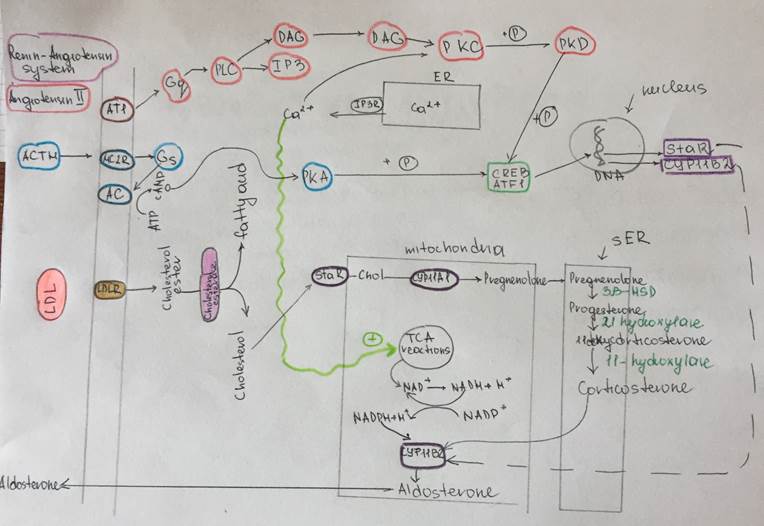 Renin-Angiotensin
system
Angiotensin II
AT1
Gq
PLC
DAG
IP3
DAG
PKC
+P
PKD
Ca2+
IP3R
ER
Ca2+
+P
nucleus
DNA
StaR
CYP11B2
ACTH
MC2R
Gs
AC
ATP
cAMP
PKA
+P
CREB
ATF1
LDL
LDLR
Cholesterol
ester
Cholesterol
esterase
fatty acid
Cholesterol
mitochondria
StaR
Chol
CYP11A1
Pregnenolone
sER
Pregnenolone
3B-HSD
Progesterone
21 hydroxylase
11-hydroxylase
Corticosterone
+
TCA
reactions
NAD+
NADH + H+
NADPH+H+
NADP+
CYP11B2
Aldosterone
Aldosterone